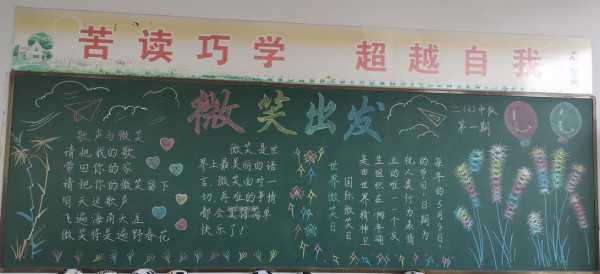 苦读巧学 超越自我
微笑出发
二(2)中队
第一期
歌声与微笑
请把我的歌
带回你的家
请把你的微笑留下
明天这歌声
飞遍海角天涯
微笑将是遍野春花
微笑是世
界上最美丽的语
言,微笑面对一
切,再难的事情
都会变得简单
快乐了!
世界微笑日
国际微笑日
是由世界精神卫
生组织在1948年确
立的唯一一个庆
祝人类行为表情
的节日,日期为
每年的5月8日,